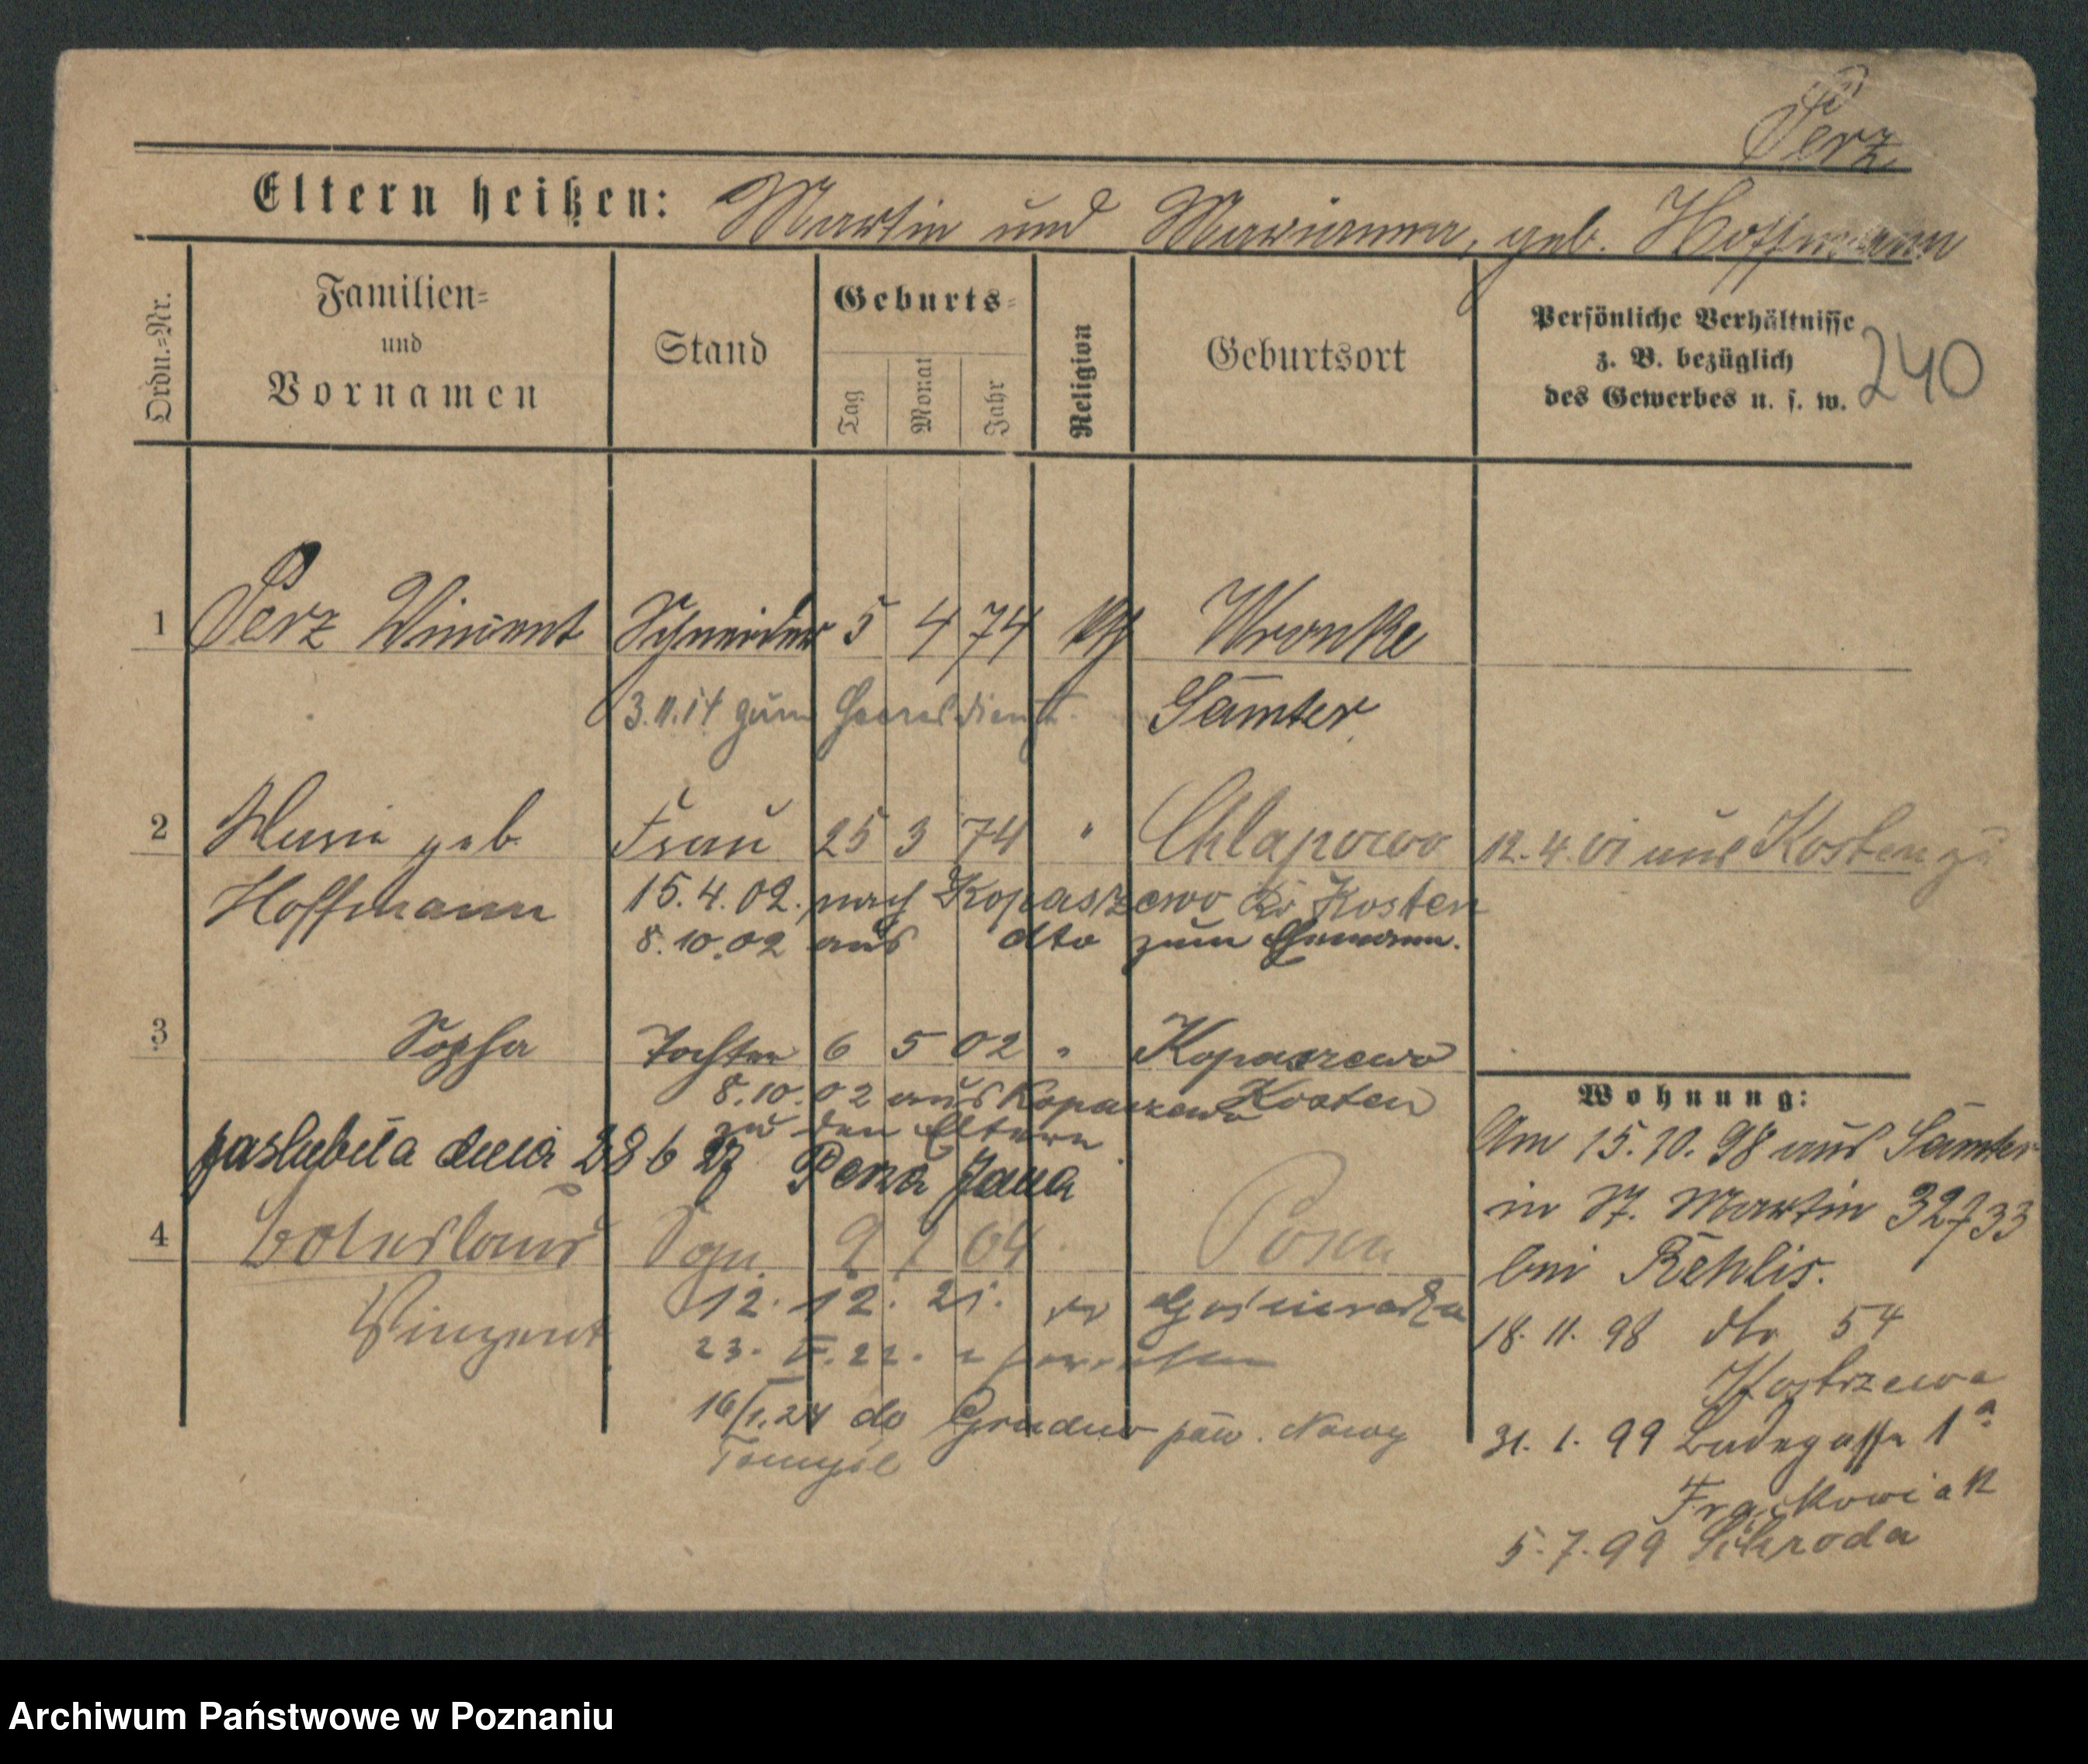 Perz
Eltern heißen: Martin und Marianna, geb. Hoffmann
Ordn.=Nr.
Familien=
und
Vornamen
Stand
Geburts=
Tag
Monat
Jahr
Religion
Geburtsort
Persönliche Verhältnisse
z. B. bezüglich
des Gewerbes u. s. w.
240
1 Perz Vincent Schneider 5 4 74 kth Wronke
3.11.14 zum Heeresdienst. Samter
2 Marie geb. Frau 25 3 74 " Chlapowo 12.4.01 aus Kosten zu
Hoffmann 15.4.02. nach Kopaszewo Kr Kosten
8.10.02 aus dto zum Ehemann.
3 Sophia Tochter 6 5 02 " Kopaszewo
8.10.02 aus Kopaszewo Kosten
zu den Eltern
zaślubiła dnia 28 6 27 Jana
4 Boleslaus Sohn 9 04 Posen
Vinzent 12. 12. 21.
23. 22.
16/1.24 do pow. Nowy
Tomyśl
Wohnung:
Am 15.10.98 aus Samter
in St. Martin 32/33
bei
18.11.98 dto 54
Kostrzewa
31.1.99 1a
Frąckowiak
5.7.99 Schroda
Archiwum Państwowe w Poznaniu